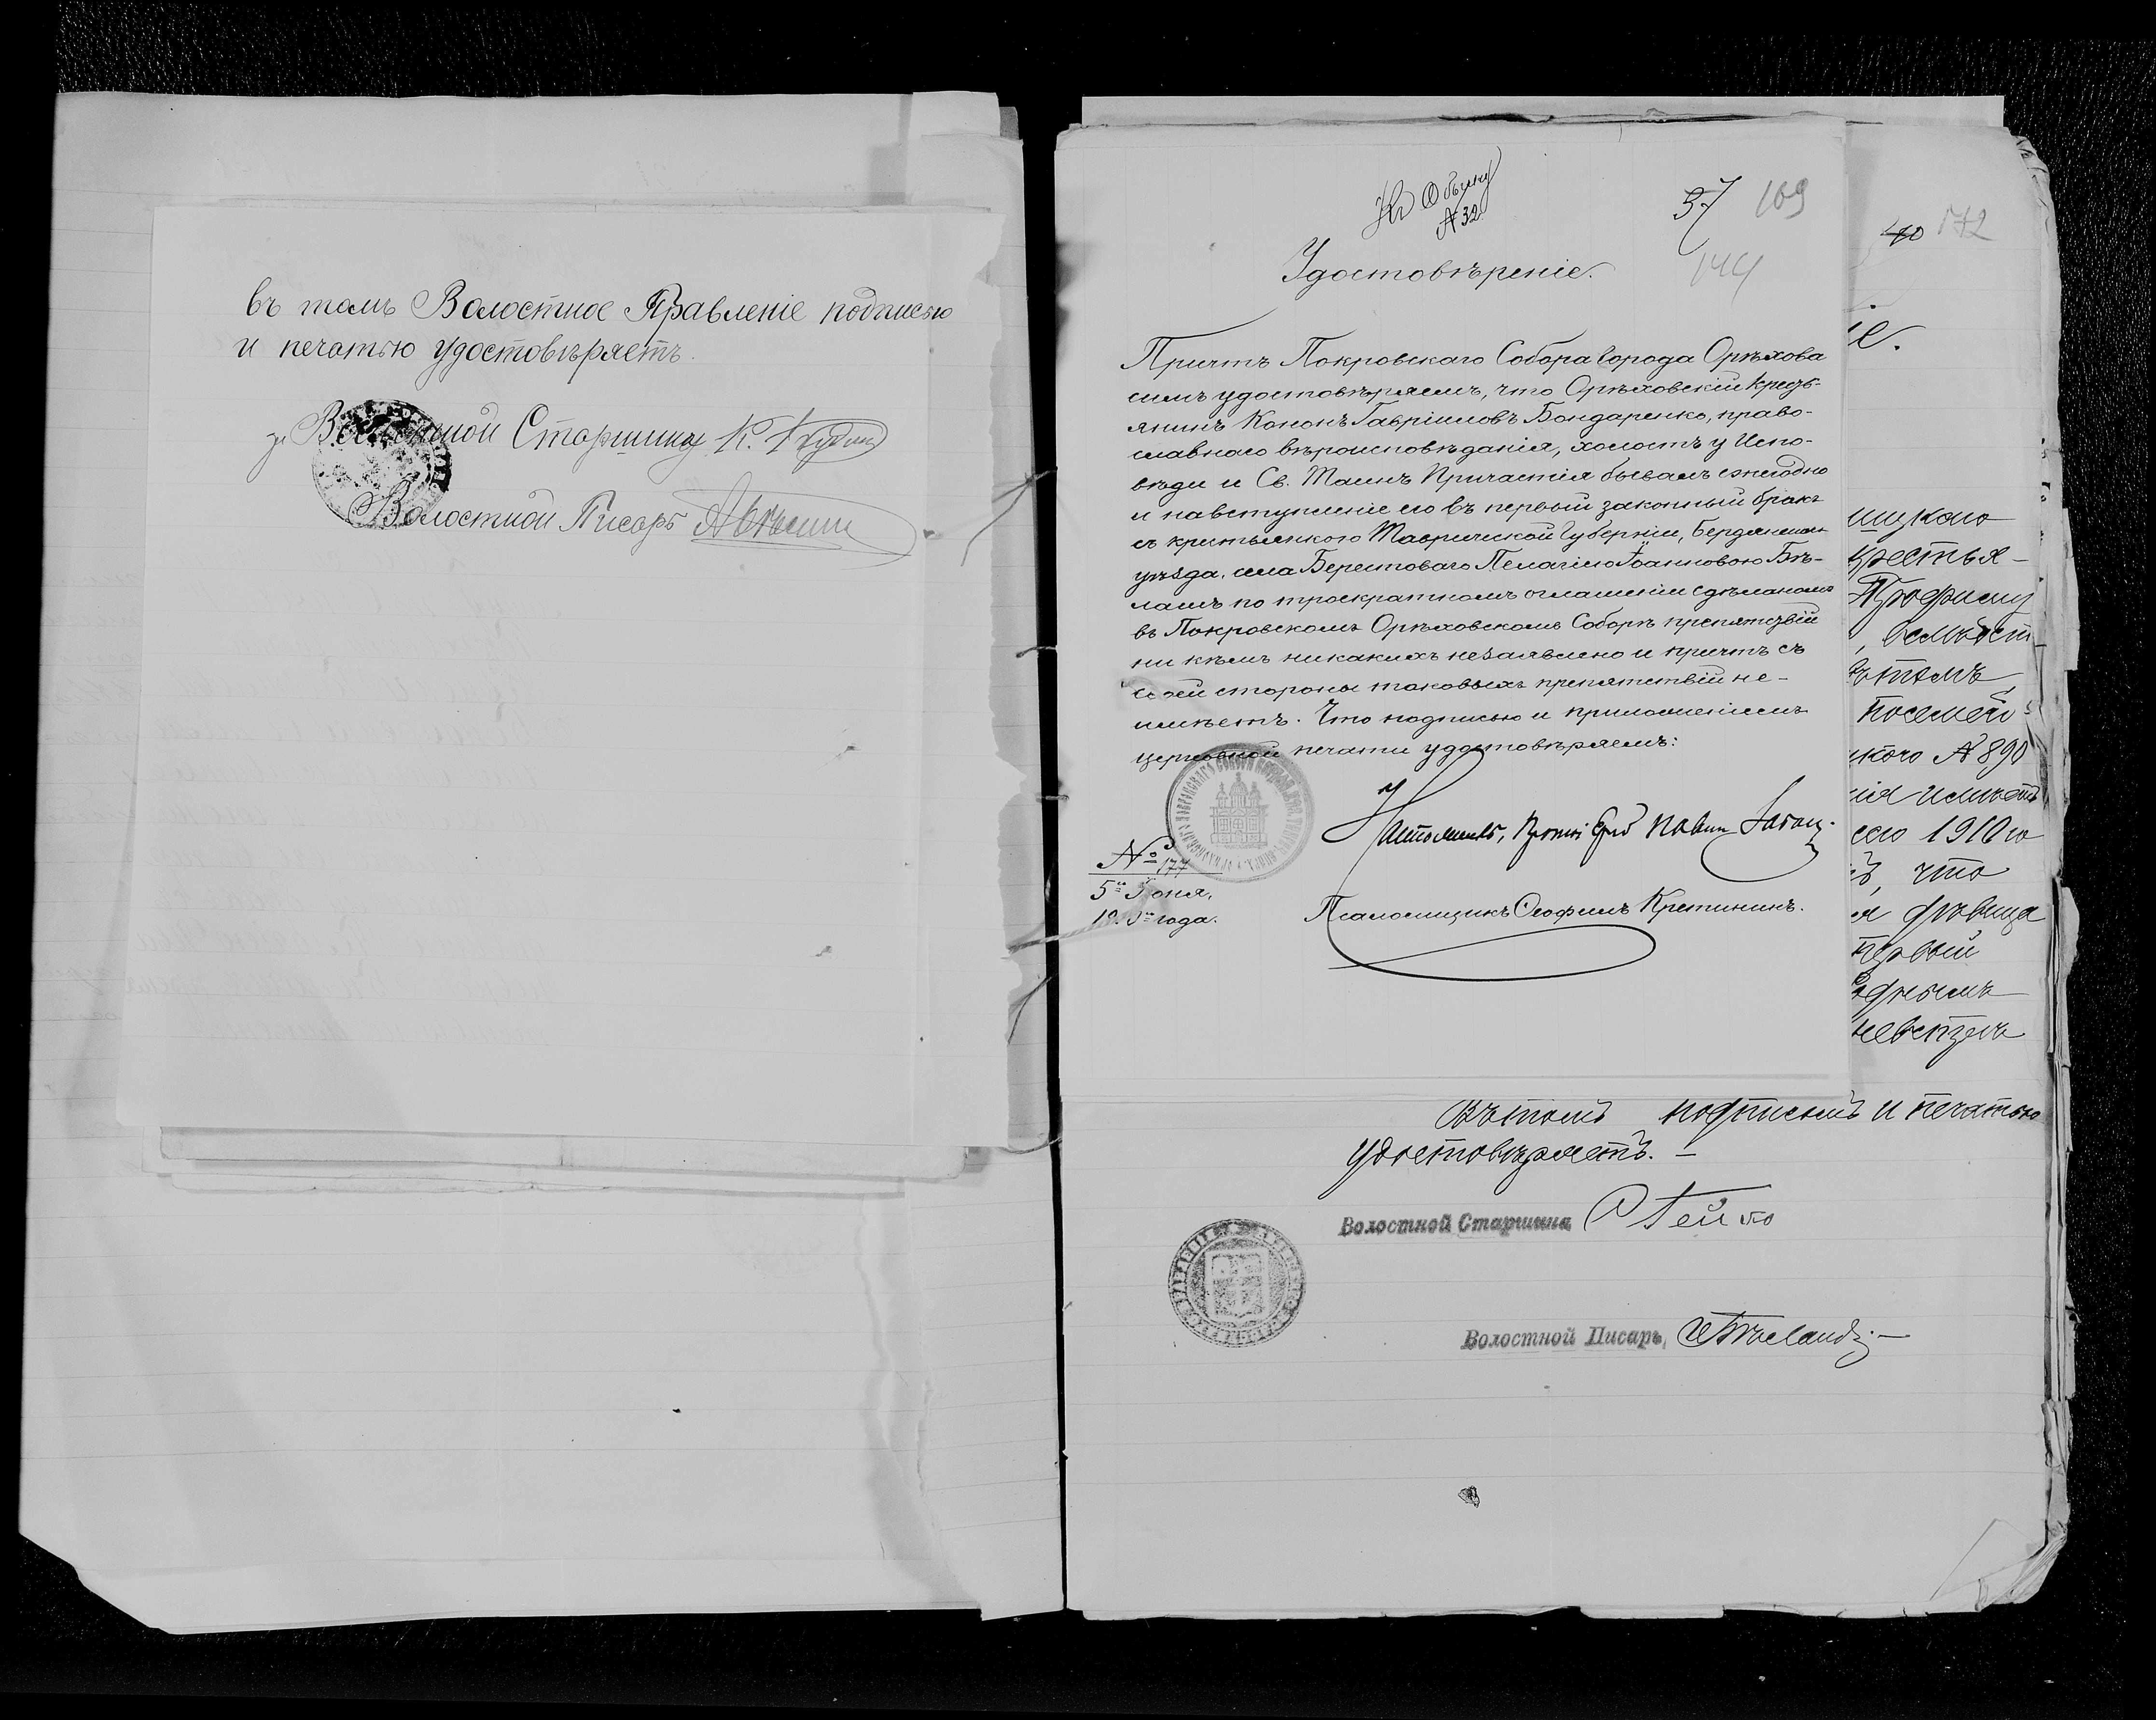 въ томъ Волостное Правленіе подписью
и печатью удостовѣряетъ.
за Волостной Старшина К.
Волостной Писарь
Къ Обыску
№ 32
37 109
144
Удостовѣреніе.
Причтъ Покровскаго Собора города Орѣхова
симъ удостовѣряемъ, что Орѣховскій кресть-
янинъ Кононъ Гавріиловъ Бондаренко, право-
славнаго вѣроисповѣданія, холостъ у Испо-
вѣди и Св. Таинъ Причастія бывалъ ежегодно
и на вступленіе его въ первый законный бракъ
съ крестьянкою Таврической Губерніи, Бердянскаго
уѣзда, села Берестоваго Пелагіею Іоанновою Бѣ-
лашъ по троекратномъ оглашеніи сдѣланномъ
въ Покровскомъ Орѣховскомъ Соборѣ препятствій
ни кѣмъ никакихъ не заявлено и причтъ съ
своей стороны таковыхъ препятствій не-
имѣетъ. Что подписью и приложеніемъ
церковной печати удостовѣряемъ:
Настоятель, Протоіерей Павелъ
№ 177
5го Іюня,
года.
Псаломщикъ Ѳеофилъ Кретининъ.
40 172
іе.
шукаго
крестья-
Трофиму
посемей-
скаго № 890
нія имѣетъ
сего 1910 го
ъ, что
дѣвица
первый
невступ
Въ томъ подписомъ и печатью
удостовѣряетъ. —
Волостной Старшина
Волостной Писарь,